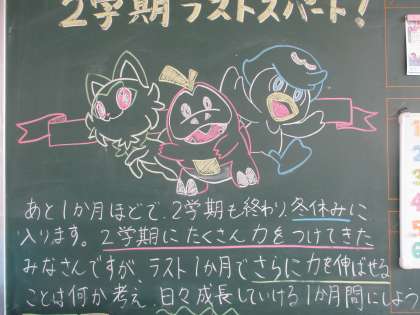 2学期ラストスパート!
あと1か月ほどで、2学期も終わり、冬休みに
入ります。2学期にたくさん力をつけてきた
みなさんですが、ラスト1か月でさらに力を伸ばせる
ことは何か考え、日々成長していける1か月間にしよう